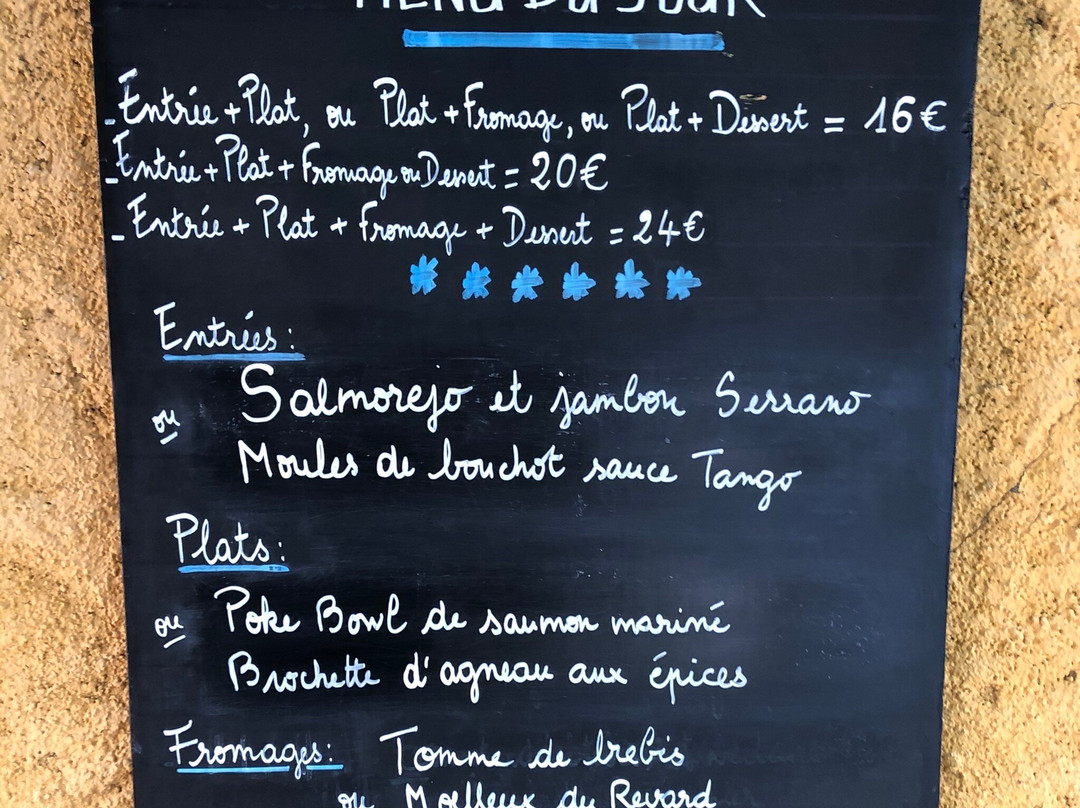 MENU DU JOUR
- Entrée + Plat, ou Plat + Fromage, ou Plat + Dessert = 16€
- Entrée + Plat + Fromage ou Dessert = 20€
- Entrée + Plat + Fromage + Dessert = 24€
Entrées :
Salmorejo et jambon Serrano
ou
Moules de bouchot sauce Tango
Plats :
Poke Bowl de saumon mariné
ou
Brochette d'agneau aux épices
Fromages : Tomme de brebis
ou Moelleux du Revard